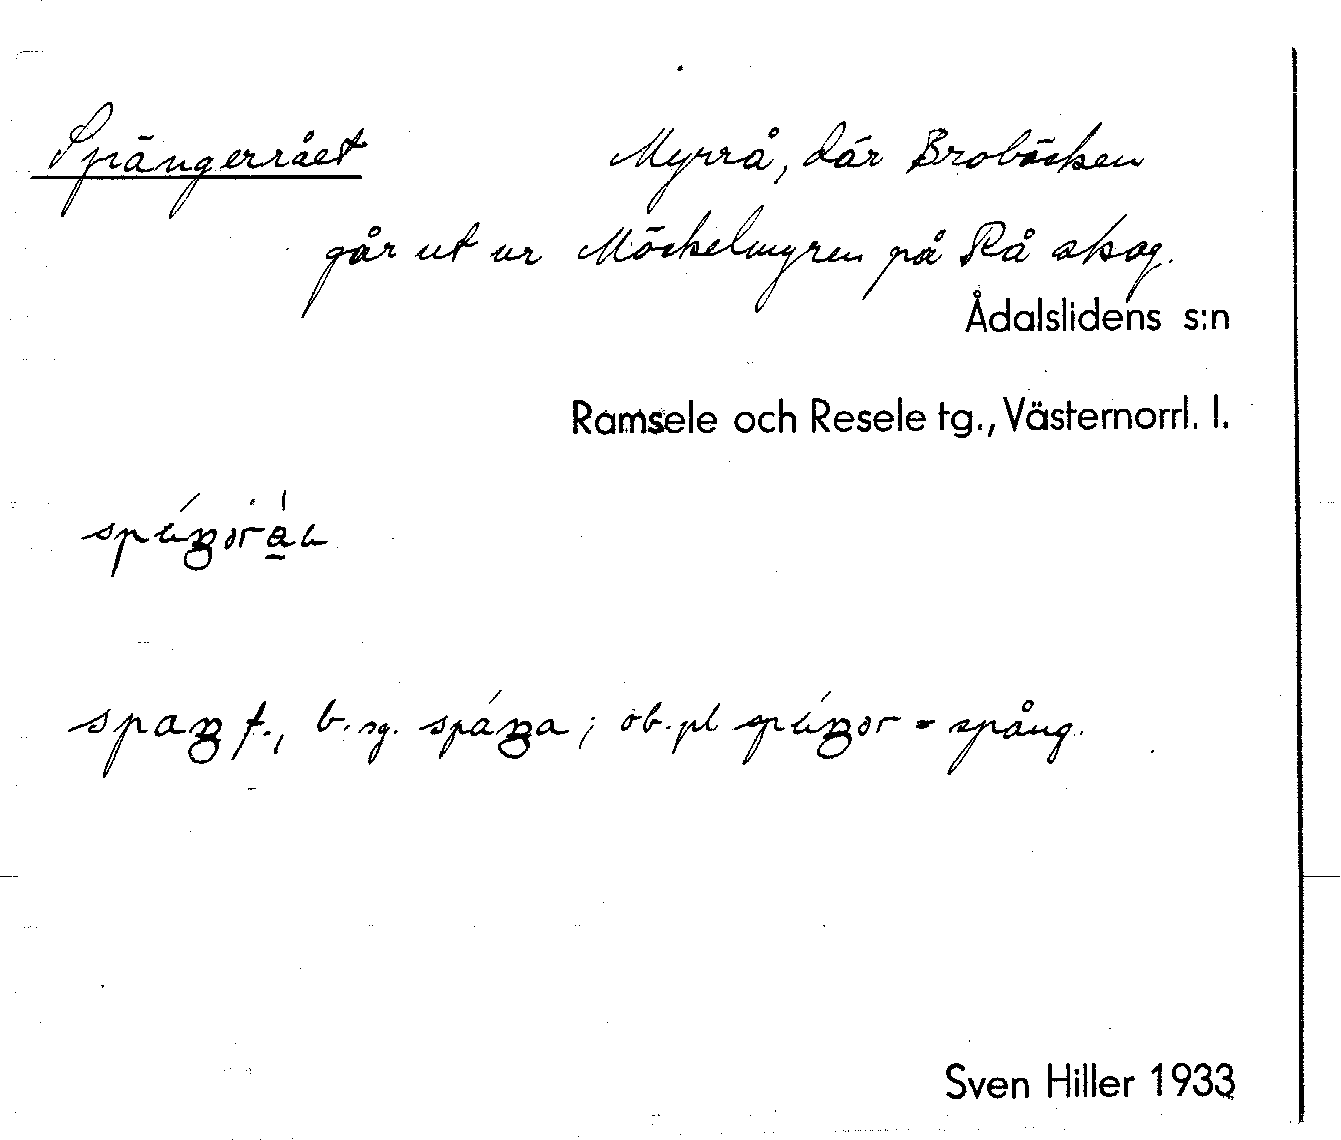 Spängerrået Myrrå, där Brobäcken
går ut ur Möckelmyren på Rå skog.
Ådalslidens s:n
Ramsele och Resele tg., Västernorrl. l.
f., b. sg. ; ob. pl = spång.
Sven Hiller 1933